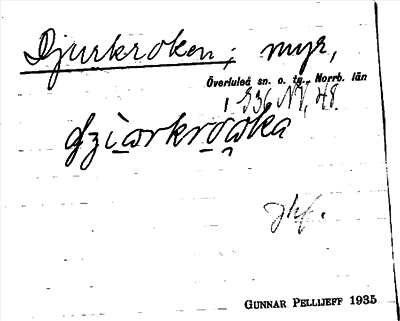 Djurkroken; myr,
Överluleå sn. o. tg., Norrb. län
1 936 NV, 48.
GUNNAR PELLIJEFF 1935